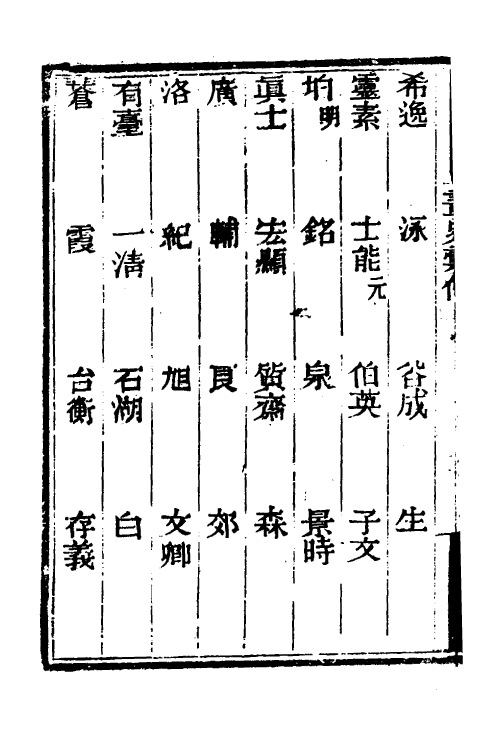 希逸 泳 谷成 生
靈素 士能元 伯英 子文
珀明 銘 泉 景時
眞士 宏顯 質齋 森
廣 輔 良 郊
洛 紀 旭 文卿
有臺 一清 石湖 白
蒼 霞 台衡 存義
畫史彙傳